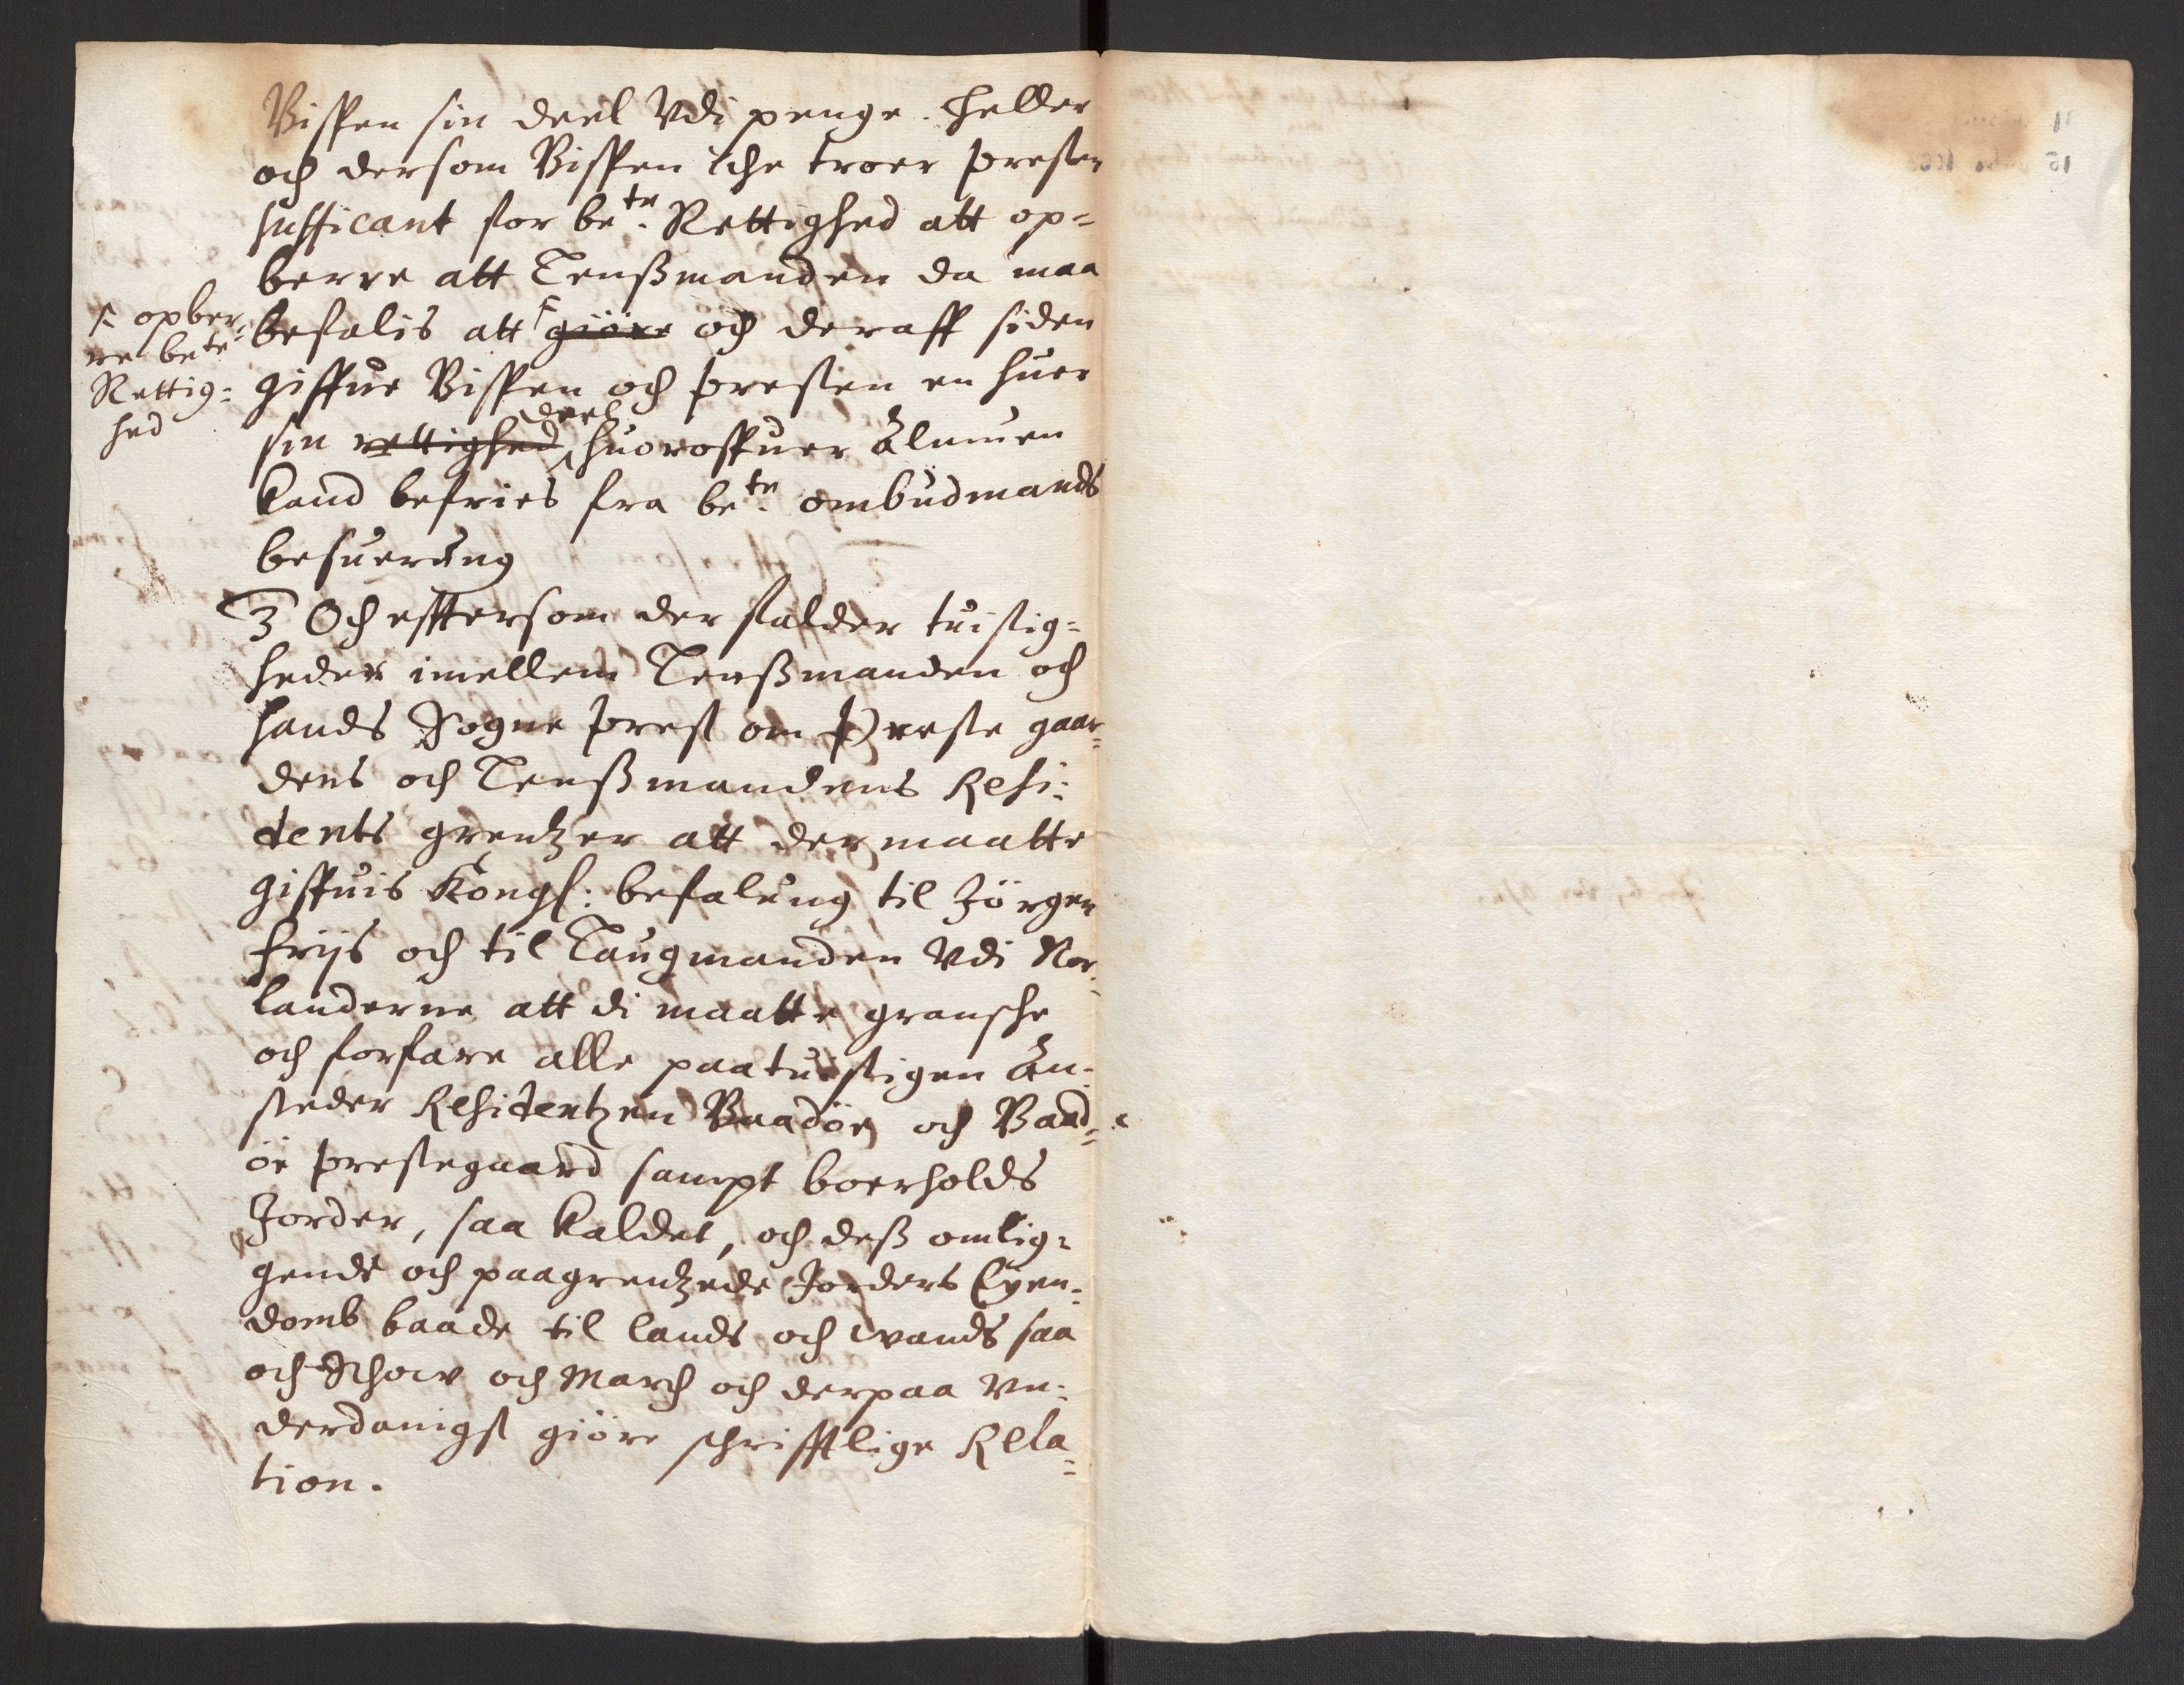 Bispen sin deel Vdi penge. Heller
och dersom Bispen iche troer presten
sufficant for be.te Rettighed att op=
berre att Lenßmanden da maa
befalis att giöre och deraff siden
giffue Bispen och presten en huer
sin rettighed deel huoroffuer Almuen
kand befries fra be.te ombudmands
besuerung
opber,
re bete
Rettig=
hed
3 Och efftersom der falder tuistig=
heder imellem Lenßmanden och
hands Sogne prest om Preste gaar=
dens och Lenßmandens Resi=
dents grentzer att der maatte
giffuis Kongl: befalung til Jörgen
friis och til Laugmanden Vdi Nor=
landerne att di maatte gransche
och forfare alle paatuistigen An=
steder Residentzen Baadöe och Baad=
öe prestegaard sampt boerholds
Jorder, saa kaldet, och deß omlig=
gende och paagrentzede Jorders Eyen=
domb baade til lands och wands saa
och Schow och March och derpaa vn=
derdanigst giöre schrifftlige Rela=
tion.